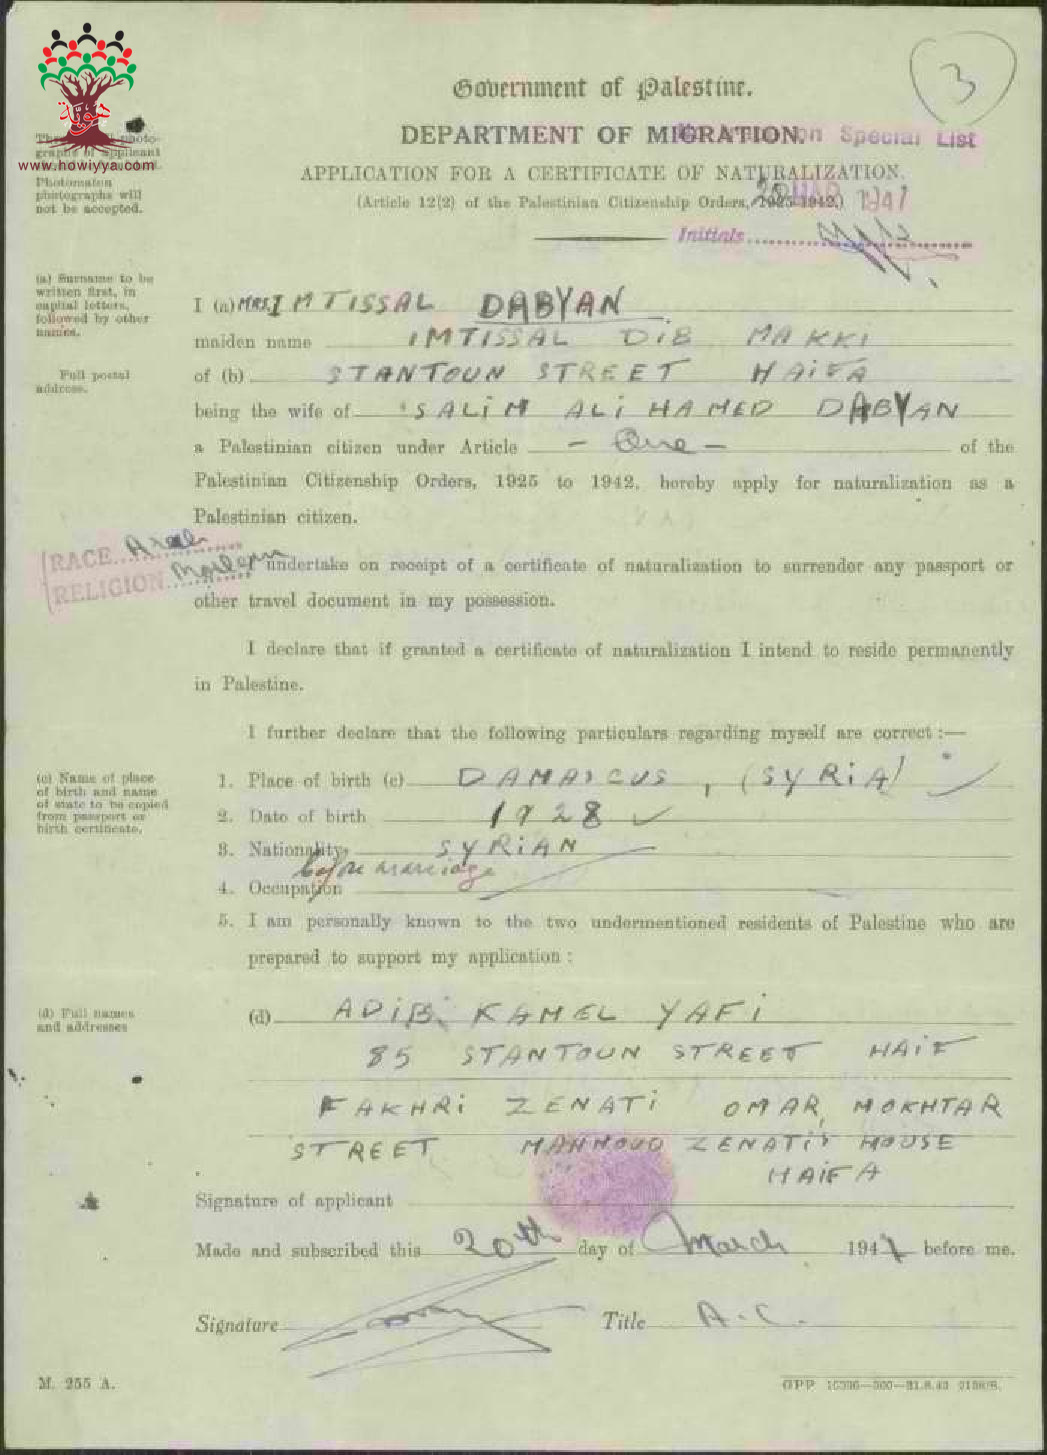 3
Government of Palestine.
DEPARTMENT OF MIGRATION.
on Special List
APPLICATION FOR A CERTIFICATE OF NATURALIZATION.
(Article 12(2) of the Palestinian Citizenship Orders, 1925-1942.)
20 MAR 1947
Initials
حوية
www.howiyya.com
photo-
graphs of applicant
Photomaton
photographs will
not be accepted.
(a) Surname to be
written first, in
capital letters,
followed by other
names.
I (a) MRS. IMTISSAL DABYAN
maiden name IMTISSAL DIB MAKKI
Full postal
address.
of (b) STANTOUN STREET HAIFA
being the wife of SALIM ALI HAMED DABYAN
a Palestinian citizen under Article - One - of the
Palestinian Citizenship Orders, 1925 to 1942, hereby apply for naturalization as a
Palestinian citizen.
RACE Arab
RELIGION Moslem
undertake on receipt of a certificate of naturalization to surrender any passport or
other travel document in my possession.
I declare that if granted a certificate of naturalization I intend to reside permanently
in Palestine.
I further declare that the following particulars regarding myself are correct :—
(c) Name of place
of birth and name
of state to be copied
from passport or
birth certificate.
1. Place of birth (c) DAMASCUS, (SYRIA)
2. Date of birth 1928
3. Nationality SYRIAN
before marriage
4. Occupation
5. I am personally known to the two undermentioned residents of Palestine who are
prepared to support my application :
(d) Full names
and addresses
(d) ADIB KAMEL YAFI
85 STANTOUN STREET HAIF
FAKHRI ZENATI OMAR MOKHTAR
STREET MAHMOUD ZENATI'S HOUSE
HAIFA
Signature of applicant
Made and subscribed this 20th day of March 1947 before me.
Signature
Title A.C.
M. 255 A.
GPP